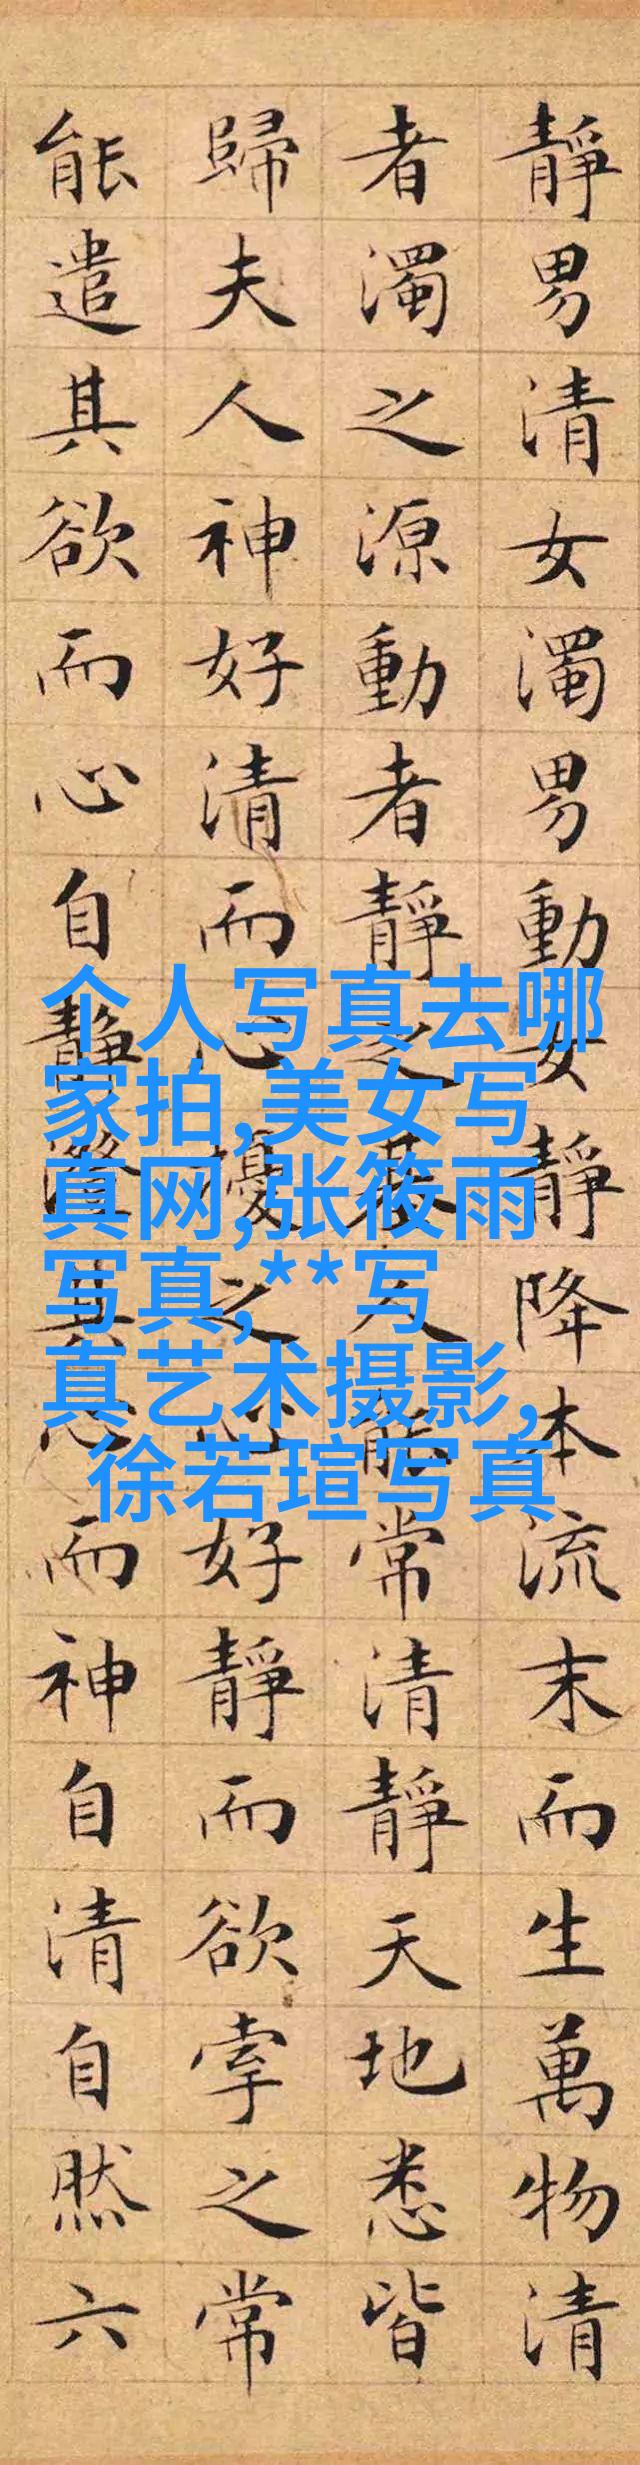 靜男清女濁男動女靜降本流末而生萬物清
者濁之源動者靜之基人能常清靜天地悉皆
歸夫人神好清而心擾之心好靜而欲牽之常
能遣其欲而心自靜澄其心而神自清自然六
个人写真去哪
家拍,美女写
真网,张筱雨
写真,**写
真艺术摄影,
徐若瑄写真